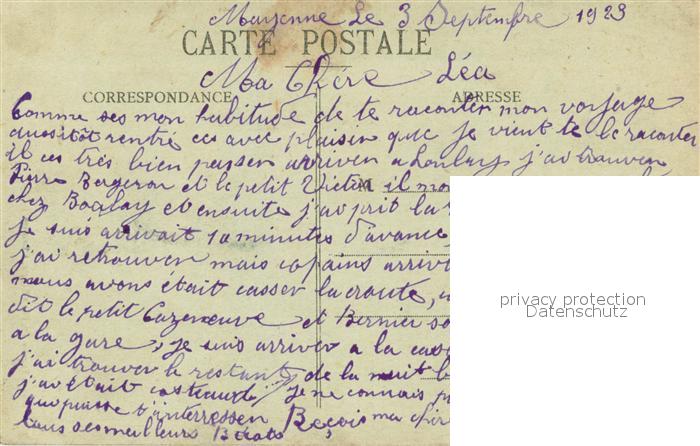 Mayenne Le 3 Septembre 1923
CARTE POSTALE
Ma Chère Léa
CORRESPONDANCE
ADRESSE
Comme ses mon habitude de te raconter mon voyage
aussitôt rentré ces avec plaisir que je vient te le raconter
il ces très bien passer arriver a j'ai trouver
Pierre Bergeron et le petit Victor il
chez et ensuite j'ai prit la
je suis arrivait 10 minutes d'avance
j'ai retrouver mais copains
nous avons était casser la croute,
dit le petit Cazeneuve et Bernier
a la gare, je suis arriver a la
j'ai trouver le restant de la nuit
j'avétait je ne connais
qui puisse t'interresser Reçois ma
tous ses meilleurs
privacy protection
Datenschutz